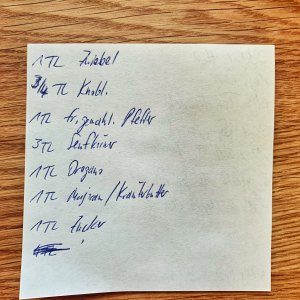 1 TL Zwiebel
3/4 TL Knobl.
1 TL fr. gemahl. Pfeffer
3 TL Senfkörner
1 TL Oregano
1 TL Majoran / Kräuterbutter
1 TL Zucker